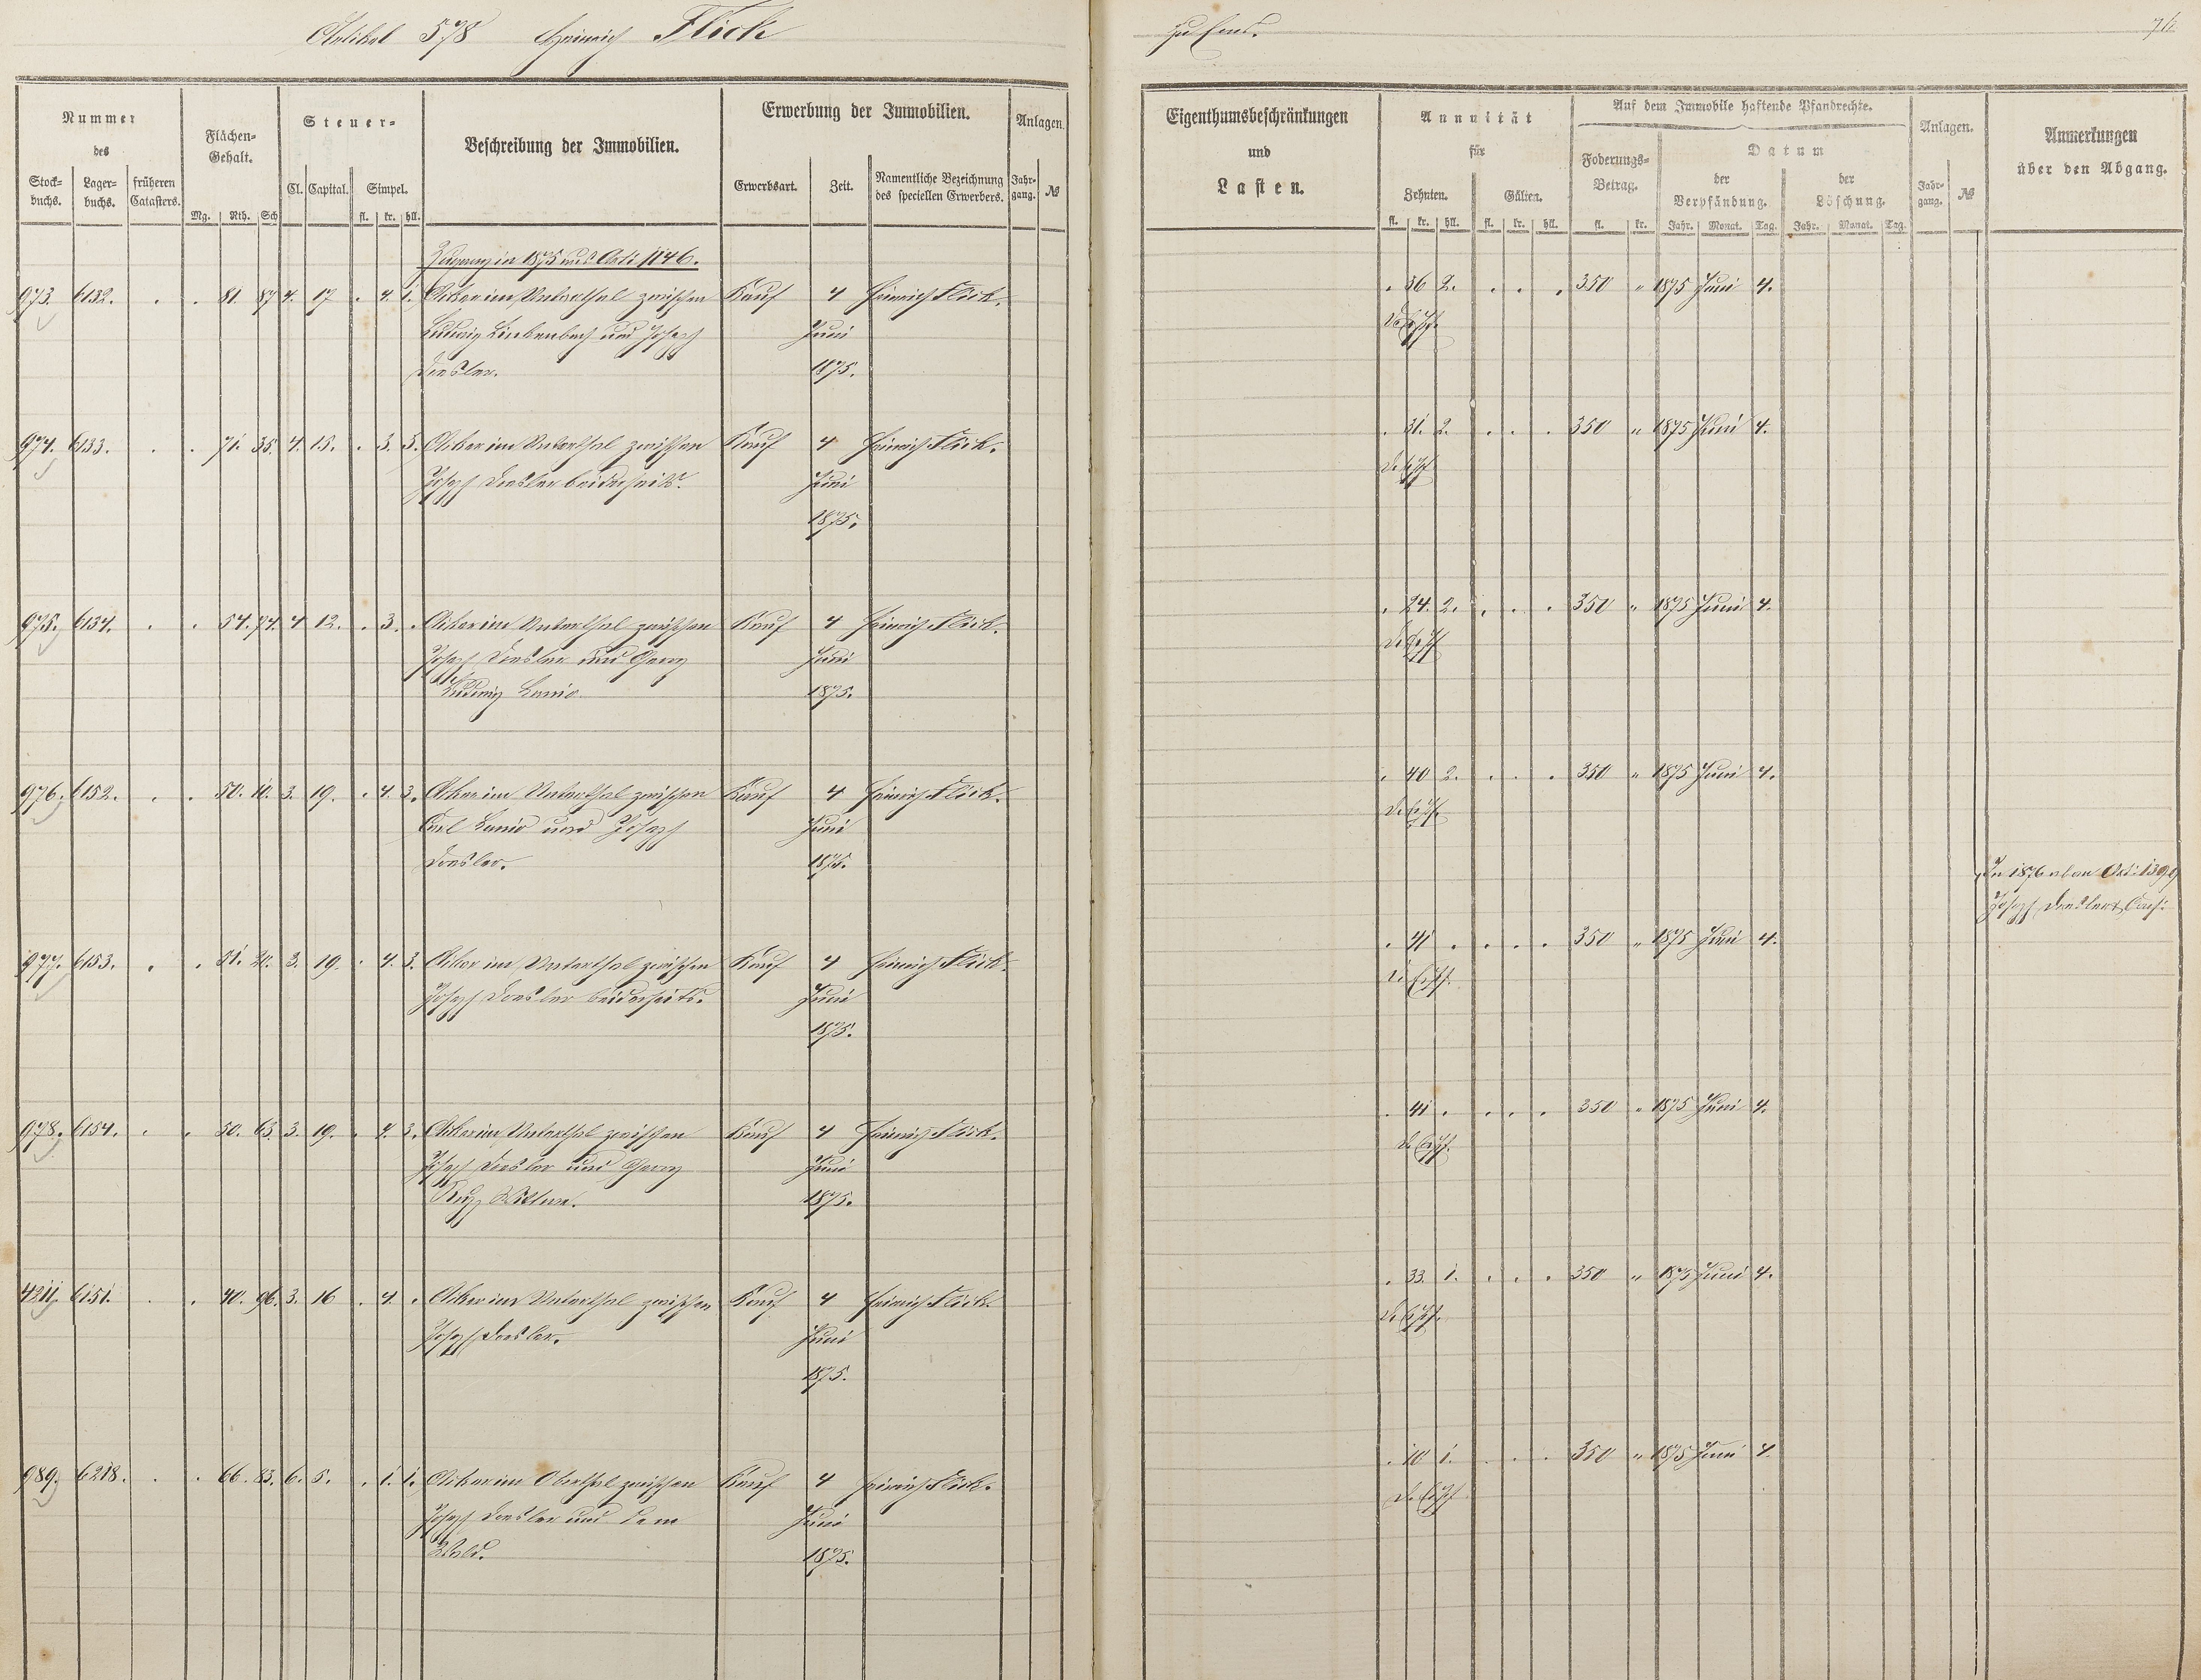 Artikel 578 Heinrich Flick
zu Ems.
Nummer des
Stock-buchs. Lager-buchs. früheren Catasters.
Flächen-Gehalt.
Mg. Rth. Sch
Steuer-
Cl. Capital. Simpel.
fl. kr. hll.
Beschreibung der Immobilien.
Erwerbung der Immobilien.
Erwerbsart. Zeit. Namentliche Bezeichnung des speciellen Erwerbers.
Anlagen.
Jahr-gang. №
Zugang in 1875 aus Arti 1146.
973. 6132. . . 81 87 4. 17 . 4. 1. Acker im Unterthal zwischen Kauf 4 Heinrich Flick.
Ludwig Linkenbach und Joseph Juni
Dresler. 1875.
974. 6133. . . 71. 35. 4. 15. . 3. 3. Acker im Unterthal zwischen Kauf 4 Heinrich Flick.
Joseph Dresler beiderseits. Juni
1875.
975. 6134. . . 54. 74. 4 12. . 3. . Acker im Unterthal zwischen Kauf 4 Heinrich Flick.
Joseph Dresler und Georg Juni
Ludwig Lanio 1875.
976. 6152. . . 50. 10. 3. 19. . 4. 3. Acker im Unterthal zwischen Kauf 4 Heinrich Flick.
Carl Lanio und Joseph Juni
Dresler. 1875.
977. 6153. . . 51. 20. 3. 19. . 4. 3. Acker im Unterthal zwischen Kauf 4 Heinrich Flick.
Joseph Dresler beiderseits. Juni
1875.
978. 6154. . . 50. 63. 3. 19. . 4. 3. Acker im Unterthal zwischen Kauf 4 Heinrich Flick.
Joseph Dresler und Georg Juni
Wittwe. 1875.
4211. 6151. . . 40. 96. 3. 16 . 4. . Acker im Unterthal zwischen Kauf 4 Heinrich Flick.
Joseph Dresler. Juni
1875.
989. 6218. . . 66. 83. 6. 5. . 1. 1. Acker im Oberthal zwischen Kauf 4 Heinrich Flick.
Joseph Dresler und dem Juni
Wald. 1875.
Eigenthumsbeschränkungen
und
Lasten.
Annuität
für
Zehnten. Gülten.
fl. kr. hll. fl. kr. hll.
Auf dem Immobile haftende Pfandrechte.
Foderungs-Betrag.
fl. kr.
Datum
der Verpfändung. der Löschung.
Jahr. Monat. Tag. Jahr. Monat. Tag.
Anlagen.
Jahr-gang. №
Anmerkungen
über den Abgang.
. 36 2. . . . 350 " 1875 Juni 4.
. 31. 2. . . . 350 " 1875 Juni 4.
. 24. 2. . . . 350 " 1875 Juni 4.
. 40 2. . . . 350 " 1875 Juni 4.
In 1876 an Arti 1399
Joseph Dresler
. 41 . . . . 350 " 1875 Juni 4.
. 41 . . . . 350 " 1875 Juni 4.
. 33. 1. . . . 350 " 1875 Juni 4.
. 10 1. . . . 350 " 1875 Juni 4.